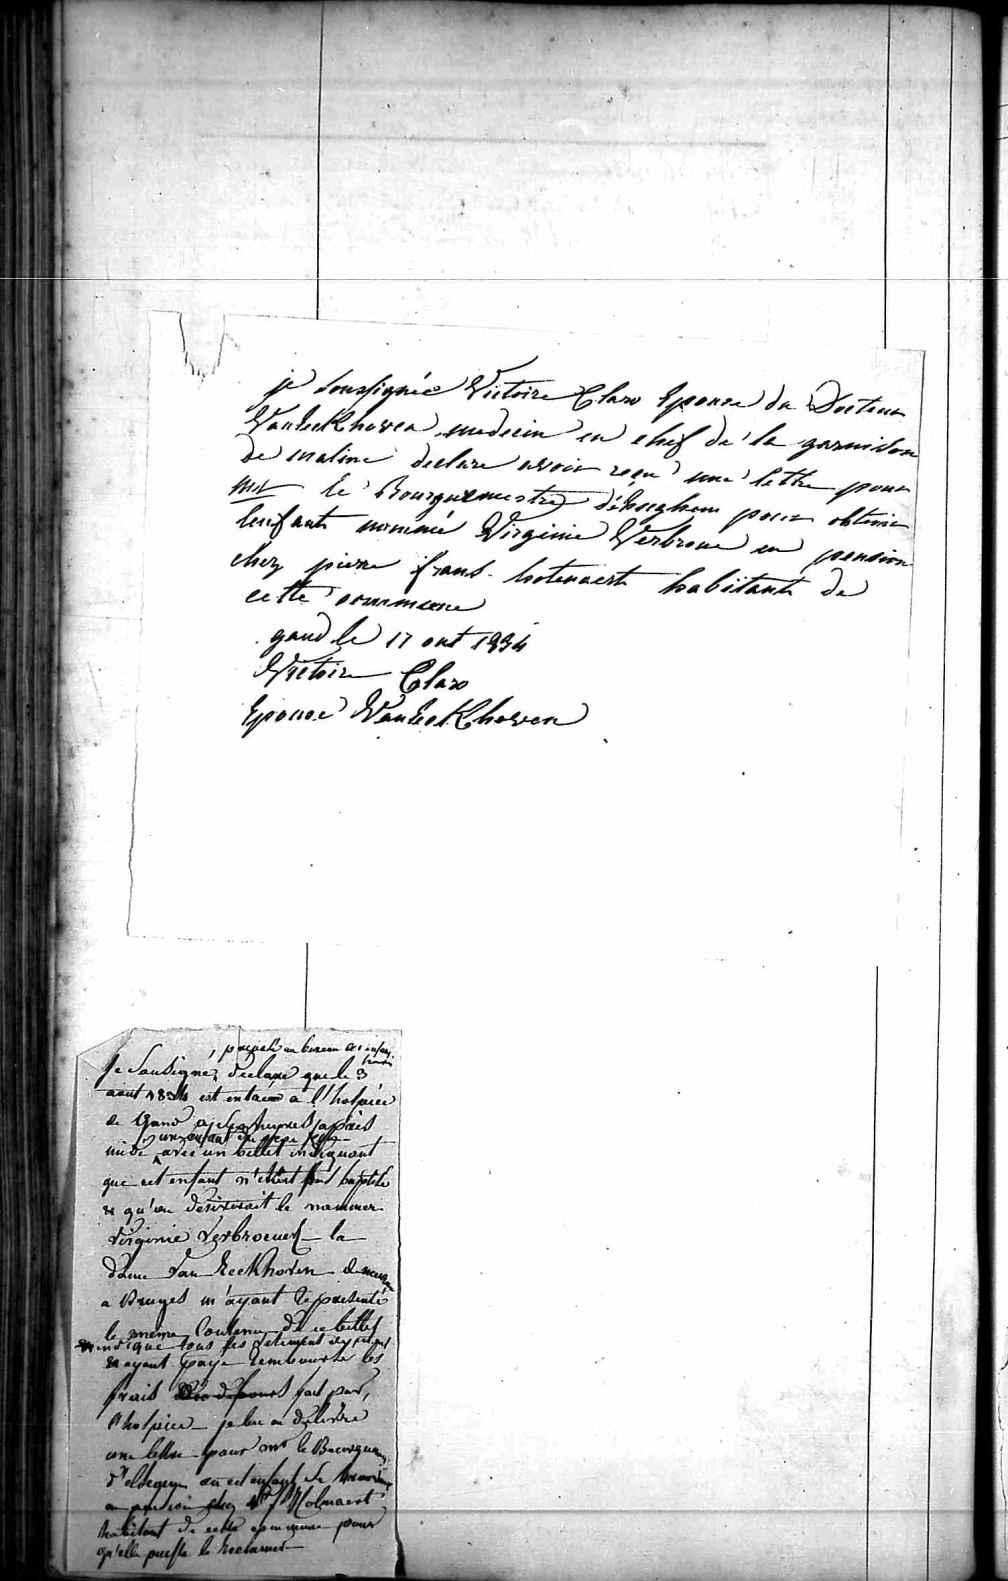 je soussignée Victoire Claro Epouse du Docteur
VanEeKhoven medecin en chef de la garnison
de maline declare avoir reçu une lettre pour
Mr le Bourguemestre d'ékseghem pour obtenir
lenfant nommée Virginie Verbroue en pension
chez pierre frans hotenaert habitant de
cette commune
gand le 17 out 1834
Victoire Claro
Epouse VanEeKhoven
préposé au bureau des enfans
trouvés
Je Sousigné, declare que le 3
aout 1834 est entaée a l'hospice
de Gand a heures après
midi avec un billet indiquant
un enfant du sexe fém
que cet enfant n'étoit pas baptisé
& qu'on desirerait le nommer
Virginie Verbroeuck la
dame Van EecKhoven
a Bruges m'ayant représenté
le même Contenu de ce billet
indiqué tous les vetements
& ayant payé remboursé les
frais fait par
l'hospice je lui ai délivré
une lettre pour mr le Bourguem
d' ou cet enfant se trouve
en pension chez Holnaert
habitant de cette commune pour
qu'elle puisse le reclamer